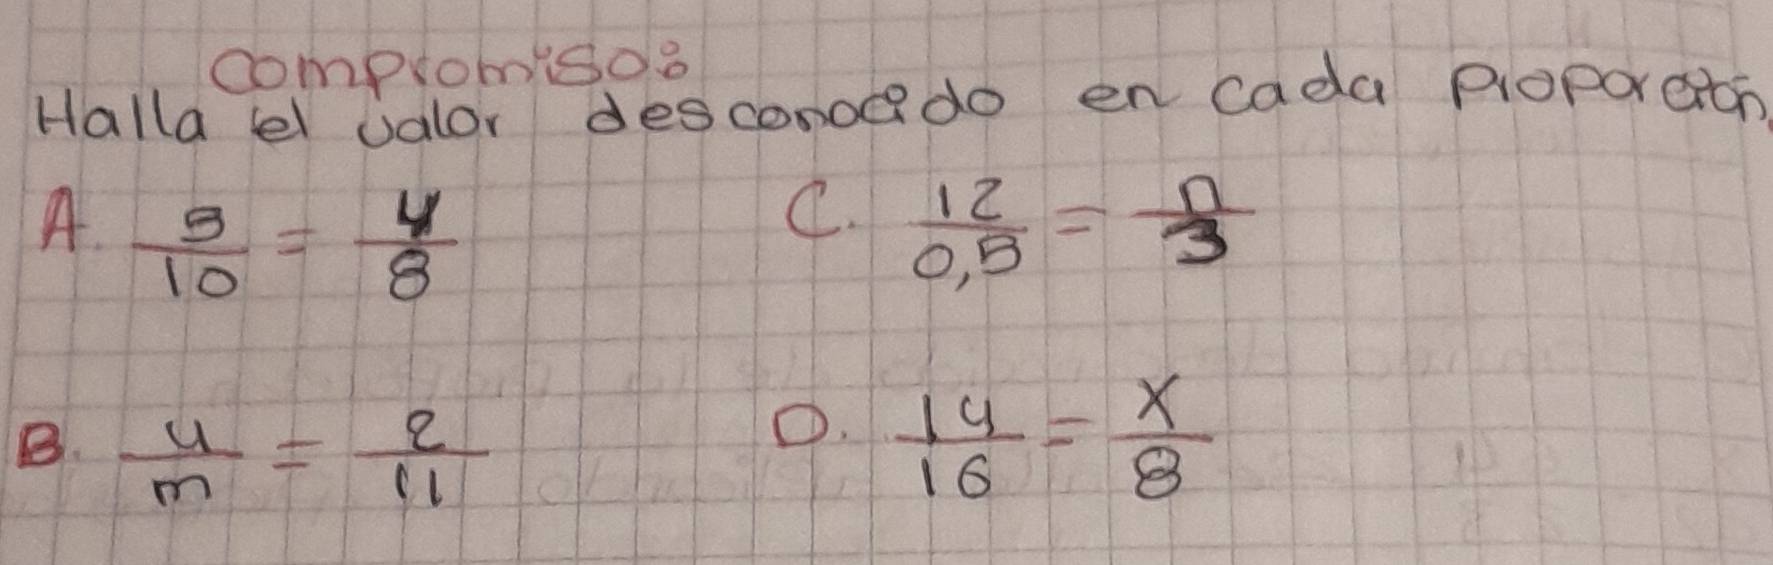 Compromiso:
Halla el valor desconocido en cada proporción.
A. 5/10 = y/8
C. 12/0,5 = n/3
B. 4/m = 2/11
D. 14/16 = x/8